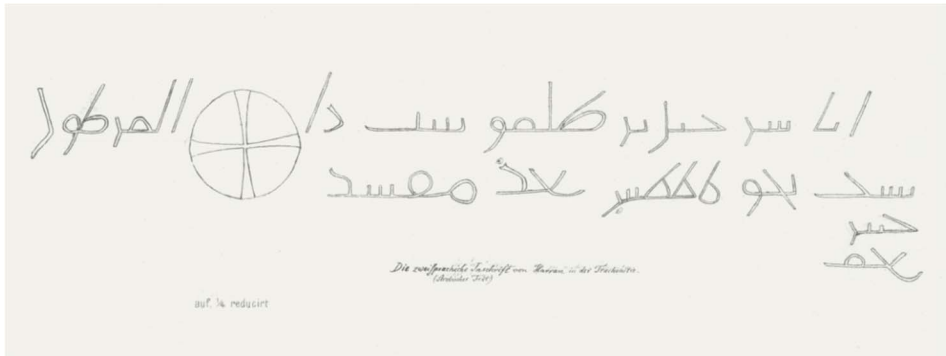 انا شرحيل بر ظلمو بنيت ذا المرطول
سنت بعد مفسد
خيبر
بعم
Die zweisprachiche Inschrift von Harran in der Trachonitis.
(Arabischer Text)
auf reducirt